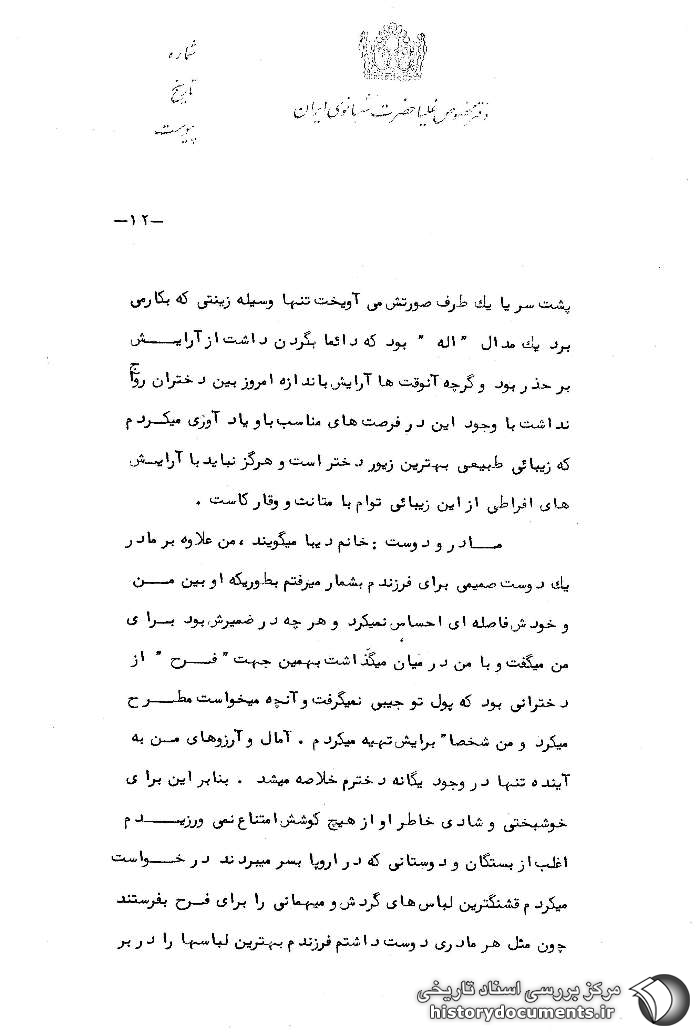 شماره
تاریخ
پیوست
دفتر مخصوص علیا حضرت شهبانوی ایران
-۱۲-
پشت سر یا یك طرف صورتش می آویخت تنها وسیله زینتی که بکار می
برد یك مدال " اله " بود که دائما بگردن داشت از آرایش
بر حذر بود و گرچه آنوقت ها آرایش باندازه امروز بین دختران رواج
نداشت با وجود این در فرصت های مناسب باو یاد آوری میکردم
که زیبائی طبیعی بهترین زیور دختر است و هرگز نباید با آرایش
های افراطی از این زیبائی توام با متانت و وقار کاست .
مادر و دوست : خانم دیبا میگویند ، من علاوه بر مادر
یك دوست صمیمی برای فرزندم بشمار میرفتم بطوریکه او بین من
و خودش فاصله ای احساس نمیکرد و هر چه در ضمیرش بود برای
من میگفت و با من در میان میگذاشت بهمین جهت " فرح " از
دخترانی بود که پول تو جیبی نمیگرفت و آنچه میخواست مطرح
میکرد و من شخصا" برایش تهیه میکردم . آمال و آرزوهای من به
آینده تنها در وجود یگانه دخترم خلاصه میشد . بنابر این برای
خوشبختی و شادی خاطر او از هیچ کوشش امتناع نمی ورزیدم
اغلب از بستگان و دوستانی که در اروپا بسر میبردند درخواست
میکردم قشنگترین لباس های گردش و میهمانی را برای فرح بفرستند
چون مثل هر مادری دوست داشتم فرزندم بهترین لباسها را در بر
مرکز بررسی اسناد تاریخی
historydocuments.ir